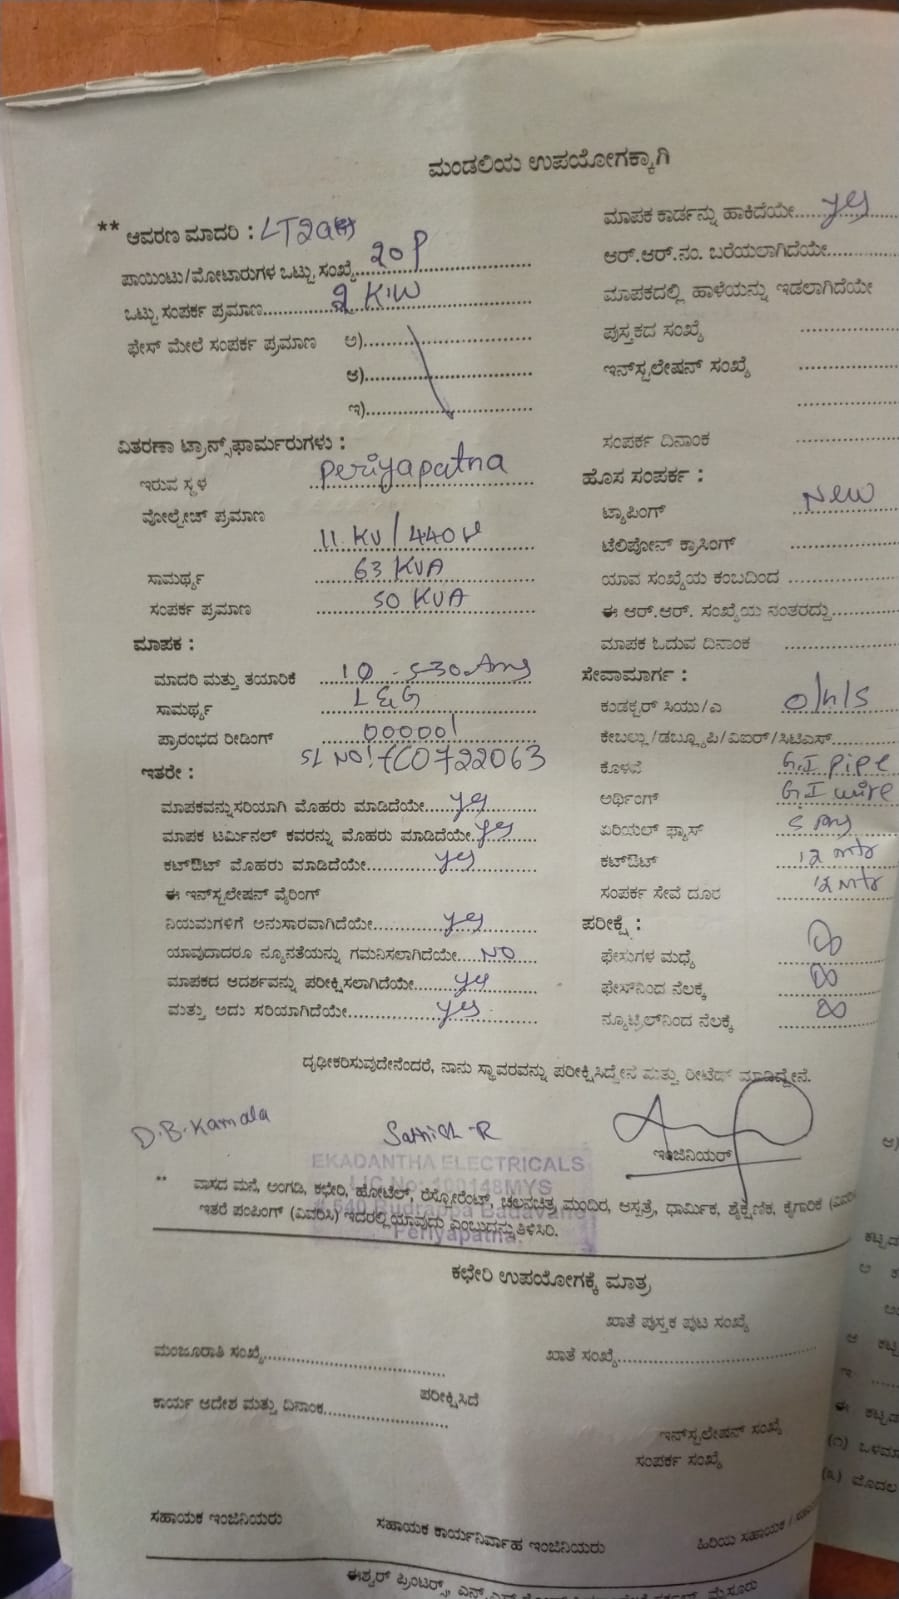 ಮಂಡಲಿಯ ಉಪಯೋಗಕ್ಕಾಗಿ
** ಆವರಣ ಮಾದರಿ : LT2a
ಪಾಯಿಂಟು/ಮೋಟಾರುಗಳ ಒಟ್ಟು ಸಂಖ್ಯೆ 20P
ಒಟ್ಟು ಸಂಪರ್ಕ ಪ್ರಮಾಣ 2 KW
ಫೇಸ್ ಮೇಲೆ ಸಂಪರ್ಕ ಪ್ರಮಾಣ ಅ)
ಆ)
ಇ)
ವಿತರಣಾ ಟ್ರಾನ್ಸ್‌ಫಾರ್ಮರುಗಳು :
ಇರುವ ಸ್ಥಳ Periyapatna
ವೋಲ್ಟೇಜ್ ಪ್ರಮಾಣ
11 KV/440V
ಸಾಮರ್ಥ್ಯ 63 KVA
ಸಂಪರ್ಕ ಪ್ರಮಾಣ 50 KVA
ಮಾಪಕ :
ಮಾದರಿ ಮತ್ತು ತಯಾರಿಕೆ 10 5-30 Amg
ಸಾಮರ್ಥ್ಯ L&G
ಪ್ರಾರಂಭದ ರೀಡಿಂಗ್ 000001
SL NO: 7C0722063
ಇತರೇ :
ಮಾಪಕವನ್ನು ಸರಿಯಾಗಿ ಮೊಹರು ಮಾಡಿದೆಯೇ yes
ಮಾಪಕ ಟರ್ಮಿನಲ್ ಕವರನ್ನು ಮೊಹರು ಮಾಡಿದೆಯೇ yes
ಕಟ್‌ಔಟ್ ಮೊಹರು ಮಾಡಿದೆಯೇ yes
ಈ ಇನ್‌ಸ್ಟಲೇಷನ್ ವೈರಿಂಗ್
ನಿಯಮಗಳಿಗೆ ಅನುಸಾರವಾಗಿದೆಯೇ yes
ಯಾವುದಾದರೂ ನ್ಯೂನತೆಯನ್ನು ಗಮನಿಸಲಾಗಿದೆಯೇ NO
ಮಾಪಕದ ಆದರ್ಶವನ್ನು ಪರೀಕ್ಷಿಸಲಾಗಿದೆಯೇ yes
ಮತ್ತು ಅದು ಸರಿಯಾಗಿದೆಯೇ yes
ಮಾಪಕ ಕಾರ್ಡನ್ನು ಹಾಕಿದೆಯೇ yes
ಆರ್.ಆರ್.ನಂ. ಬರೆಯಲಾಗಿದೆಯೇ
ಮಾಪಕದಲ್ಲಿ ಹಾಳೆಯನ್ನು ಇಡಲಾಗಿದೆಯೇ
ಪುಸ್ತಕದ ಸಂಖ್ಯೆ
ಇನ್‌ಸ್ಟಲೇಷನ್ ಸಂಖ್ಯೆ
ಸಂಪರ್ಕ ದಿನಾಂಕ
ಹೊಸ ಸಂಪರ್ಕ :
ಟ್ಯಾಪಿಂಗ್ New
ಟೆಲಿಪೋನ್ ಕ್ರಾಸಿಂಗ್
ಯಾವ ಸಂಖ್ಯೆಯ ಕಂಬದಿಂದ
ಈ ಆರ್.ಆರ್. ಸಂಖ್ಯೆಯ ನಂತರದ್ದು
ಮಾಪಕ ಓದುವ ದಿನಾಂಕ
ಸೇವಾಮಾರ್ಗ :
ಕಂಡಕ್ಟರ್ ಸಿಯು/ಎ O/h/s
ಕೇಬಲ್ಲು/ಡಬ್ಲ್ಯೂಪಿ/ವಿಐಆರ್/ಸಿಟಿಎಸ್
ಕೊಳವೆ G.I pipe
ಅರ್ಥಿಂಗ್ G I wire
ಏರಿಯಲ್ ಫ್ಯೂಸ್ 5 Amg
ಕಟ್‌ಔಟ್ 12 mtr
ಸಂಪರ್ಕ ಸೇವೆ ದೂರ 12 mtr
ಪರೀಕ್ಷೆ :
ಫೇಸುಗಳ ಮಧ್ಯೆ ∞
ಫೇಸ್‌ನಿಂದ ನೆಲಕ್ಕೆ ∞
ನ್ಯೂಟ್ರಲ್‌ನಿಂದ ನೆಲಕ್ಕೆ ∞
ದೃಢೀಕರಿಸುವುದೇನೆಂದರೆ, ನಾನು ಸ್ಥಾವರವನ್ನು ಪರೀಕ್ಷಿಸಿದ್ದೇನೆ ಮತ್ತು ರೀಟೆಡ್ ಮಾಡಿದ್ದೇನೆ.
D.B.Kamala Sathish-R
ಇಂಜಿನಿಯರ್
EKADANTHA ELECTRICALS
LIC No: 100148MYS
Periyapatna.
** ವಾಸದ ಮನೆ, ಅಂಗಡಿ, ಕಛೇರಿ, ಹೋಟೆಲ್, ರೆಸ್ಟೋರೆಂಟ್, ಚಲನಚಿತ್ರ ಮಂದಿರ, ಆಸ್ಪತ್ರೆ, ಧಾರ್ಮಿಕ, ಶೈಕ್ಷಣಿಕ, ಕೈಗಾರಿಕೆ
ಇತರೆ ಪಂಪಿಂಗ್ (ವಿವರಿಸಿ) ಇದರಲ್ಲಿ ಯಾವುದು ಎಂಬುದನ್ನು ತಿಳಿಸಿರಿ.
ಕಛೇರಿ ಉಪಯೋಗಕ್ಕೆ ಮಾತ್ರ
ಖಾತೆ ಪುಸ್ತಕ ಪುಟ ಸಂಖ್ಯೆ
ಮಂಜೂರಾತಿ ಸಂಖ್ಯೆ ಖಾತೆ ಸಂಖ್ಯೆ
ಪರೀಕ್ಷಿಸಿದೆ
ಕಾರ್ಯ ಆದೇಶ ಮತ್ತು ದಿನಾಂಕ
ಇನ್‌ಸ್ಟಲೇಷನ್ ಸಂಖ್ಯೆ
ಸಂಪರ್ಕ ಸಂಖ್ಯೆ
ಸಹಾಯಕ ಇಂಜಿನಿಯರು ಸಹಾಯಕ ಕಾರ್ಯನಿರ್ವಾಹ ಇಂಜಿನಿಯರು ಹಿರಿಯ ಸಹಾಯಕ /
ಈಶ್ವರ್ ಪ್ರಿಂಟರ್ಸ್,